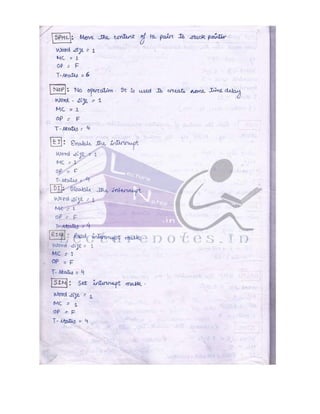 SPHL : Move the content of HL pair to stack pointer
Word size = 1
MC = 1
OP = F
T-states = 6
NOP : No operation. It is used to create some time delay
Word - size = 1
MC = 1
OP = F
T-states = 4
EI : Enable the interrupt
Word size = 1
MC = 1
OP = F
T-states = 4
DI : Disable the interrupt
Word size = 1
MC = 1
OP = F
T-states = 4
RIM : Read interrupt mask.
Word size = 1
MC = 1
OP = F
T-states = 4
SIM : Set interrupt mask.
Word size = 1
MC = 1
OP = F
T-states = 4
Lecture
Notes
.in
Lecturenotes.in